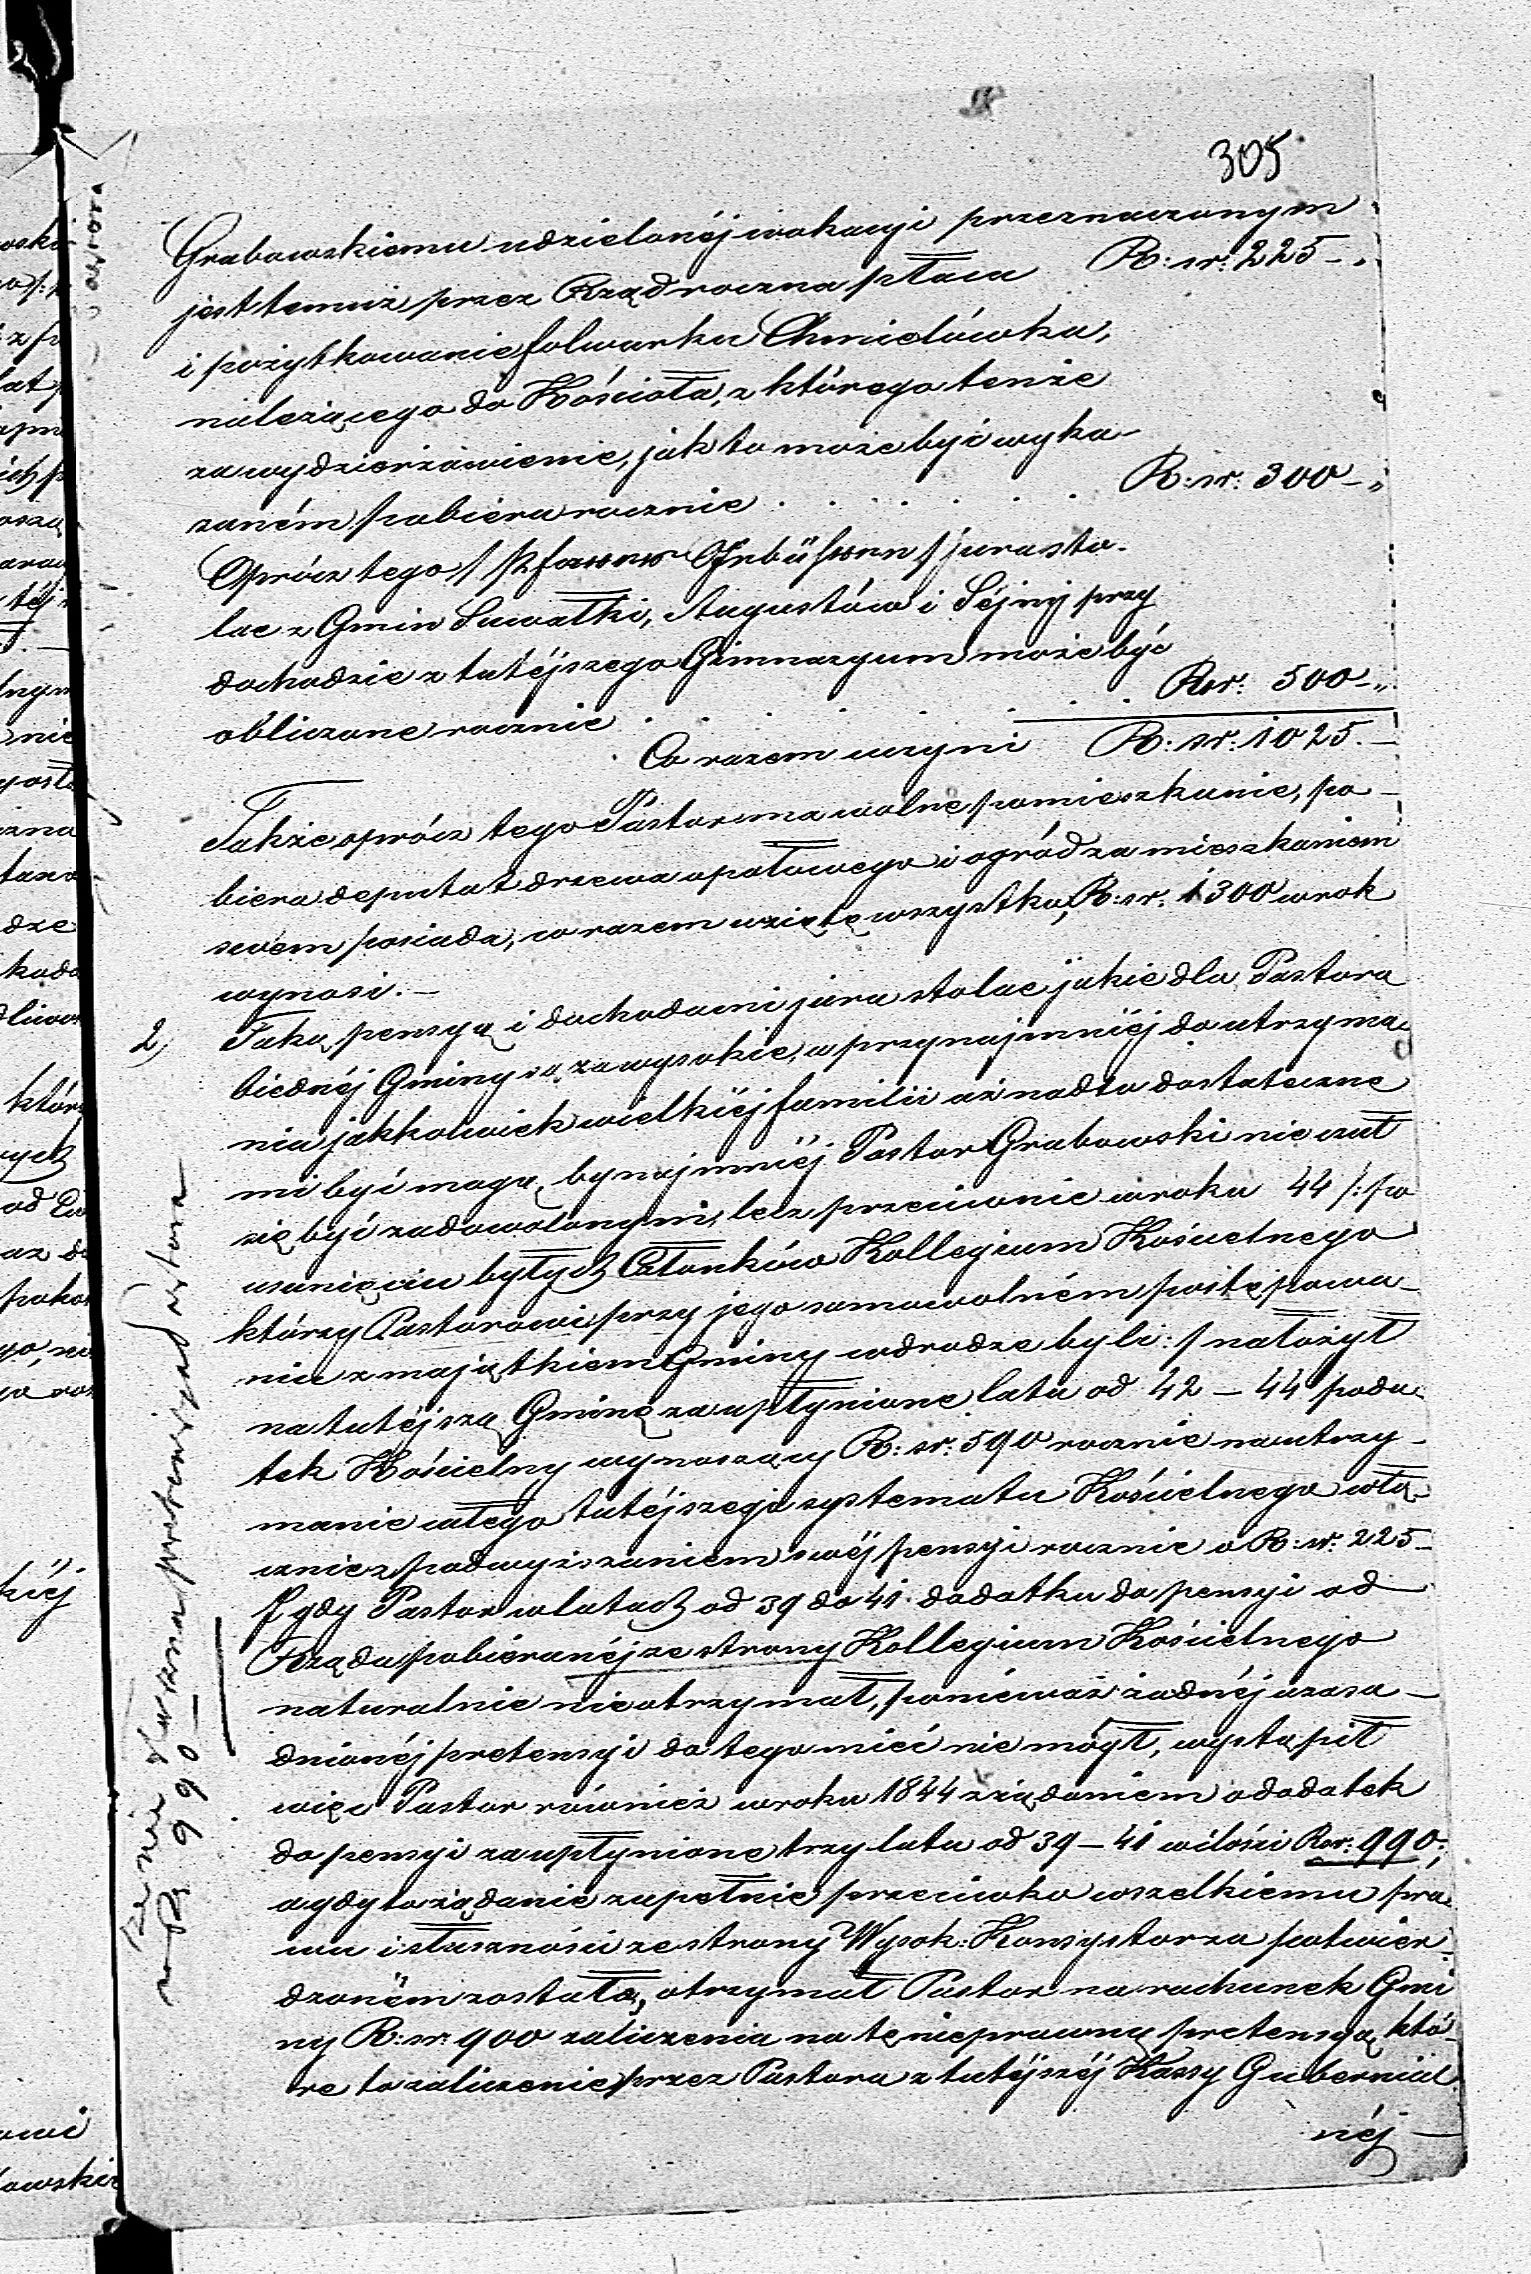 305
Grabowskiemu udzielonéj wokacyi przeznaczonym
jest temuż przez Rząd roczna płaca R: sr: 225 –„
i pożytkowanie folwarku Chmielówka,
należącego do Kościoła, z którego tenże
za wydzierżawienie, jak to może być wyka-
zaném pobiera rocznie . . . . . . R: sr: 300 –„
Oprócz tego / Pfarrer Gebühren / jura sto-
lae z Gmin Suwałki, Augustów i Séjny przy
dochodzie z tutéjszego Gimnazyum może być
obliczone rocznie . . . . . . Rsr: 500 –„
Co razem uczyni R: sr: 1025. –
Także oprócz tego Pastor ma wolne pomieszkanie, po-
biera deputat drzewa opałowego i ogród za mieszkaniem
swem posiada, co razem wzięte wszystko, R: sr. 1300 w rok
wynosi. –
2) Taką pensyą i dochodami jura stolae jakie dla Pastora
biednéj Gminy są za wysokie, a przynajmniéj do utrzyma-
nia jakkolwiek wielkiéj familii aż nadto dostateczne
mi być mogą, bynajmniéj Pastor Grabowski nie czuł
się być zadowolonym, lecz przeciwnie w roku 44 /: po
usunięciu byłych Członków Kollegium Kościelnego
którzy Pastorowi przy jego samowolném postępowa-
niu z majątkiem Gminy w drodze byli :/ nałożył
na tutéjszą Gminę za upłynione lata od 42 – 44 poda-
tek Kościelny wynoszący R: sr: 590 rocznie na utrzy-
manie całego tutéjszego systematu Kościelnego włą-
cznie z podwyższaniem swéj pensyi rocznie o R: sr. 225 –
/ gdy Pastor w latach od 39 do 41. dodatku do pensyi od
Rządu pobieranéj ze strony Kollegium Kościelnego
naturalnie nie otrzymał, poniéważ żadnéj uzasa-
dnionéj pretensyi do tego mieć nie mógł, wystąpił
więc Pastor również w roku 1844 z żądaniem o dodatek
do pensyi za upłynione trzy lata od 39 – 41 w ilości Rsr: 990;
a gdy to żądanie zupełnie przeciwko wszelkiemu pra-
wu i słuszności ze strony Wysok: Konsystorza potwier-
dzoném zostało, otrzymał Pastor na rachunek Gmi
ny R: sr: 900 zaliczenia na tę nieprawną pretensyą, któ-
re to zaliczenie przez Pastora z tutéjszéj Kassy Gubernial
néj –
pretensya Pastora
na Rs 990 –